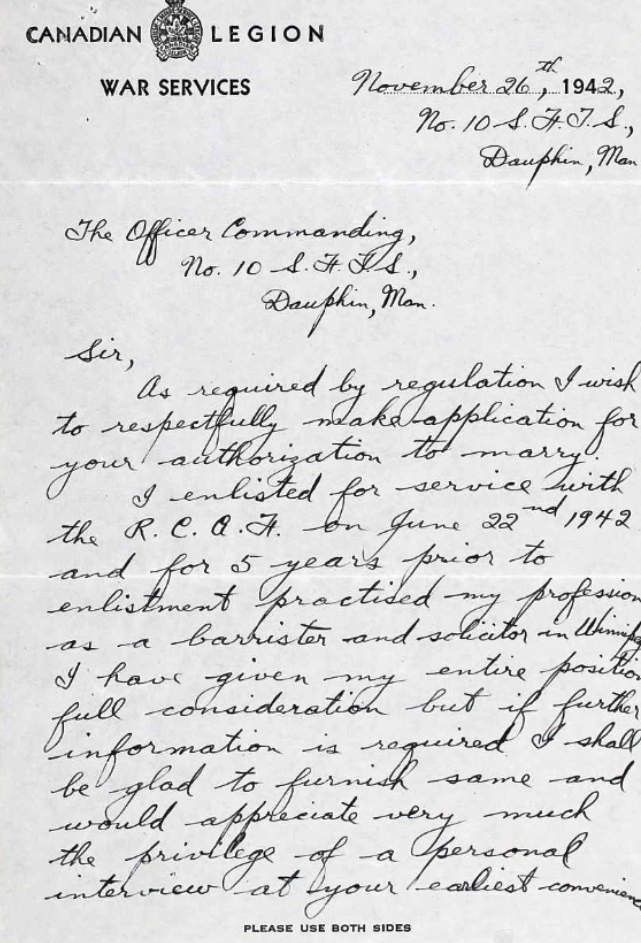 CANADIAN LEGION
WAR SERVICES
November 26th, 1942,
No. 10 S. F. T. S.,
Dauphin, Man
The Officer Commanding,
No. 10 S. F. T. S.,
Dauphin, Man.
Sir,
As required by regulation I wish
to respectfully make application for
your authorization to marry.
I enlisted for service with
the R. C. A. F. on June 22nd 1942
and for 5 years prior to
enlistment practised my profession
as a barrister and solicitor in Winnipeg
I have given my entire position
full consideration but if further
information is required I shall
be glad to furnish same and
would appreciate very much
the privilege of a personal
interview at your earliest convenience
PLEASE USE BOTH SIDES